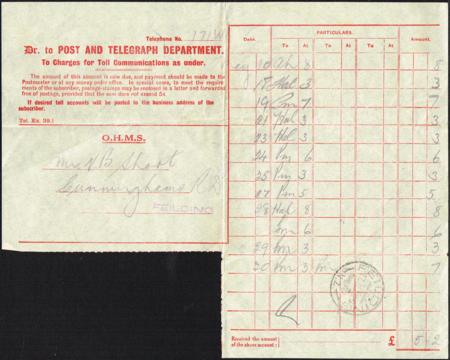 Telephone No. 171W
Dr. to POST AND TELEGRAPH DEPARTMENT.
To Charges for Toll Communications as under.
The amount of this account is now due, and payment should be made to the
Postmaster or at any money order office. In special cases, to meet the require-
ments of the subscriber, postage-stamps may be enclosed in a letter and forwarded
free of postage, provided that the sum does not exceed 5s.
If desired toll accounts will be posted to the business address of the
subscriber.
O.H.M.S.
Short
Cunninghams R.D.
FEILDING
Date. PARTICULARS. Amount.
To At To At To At
10 8 8
18 Hal 3 3
19 7 7
21 Hal 3 3
23 Hal 3 3
24 Pm 6 6
25 Pm 3 3
27 Pm 5 5
28 Hal 8 8
6 6
29 3 3
30 3 7
Received the amount
of the above account:
£ 5 2